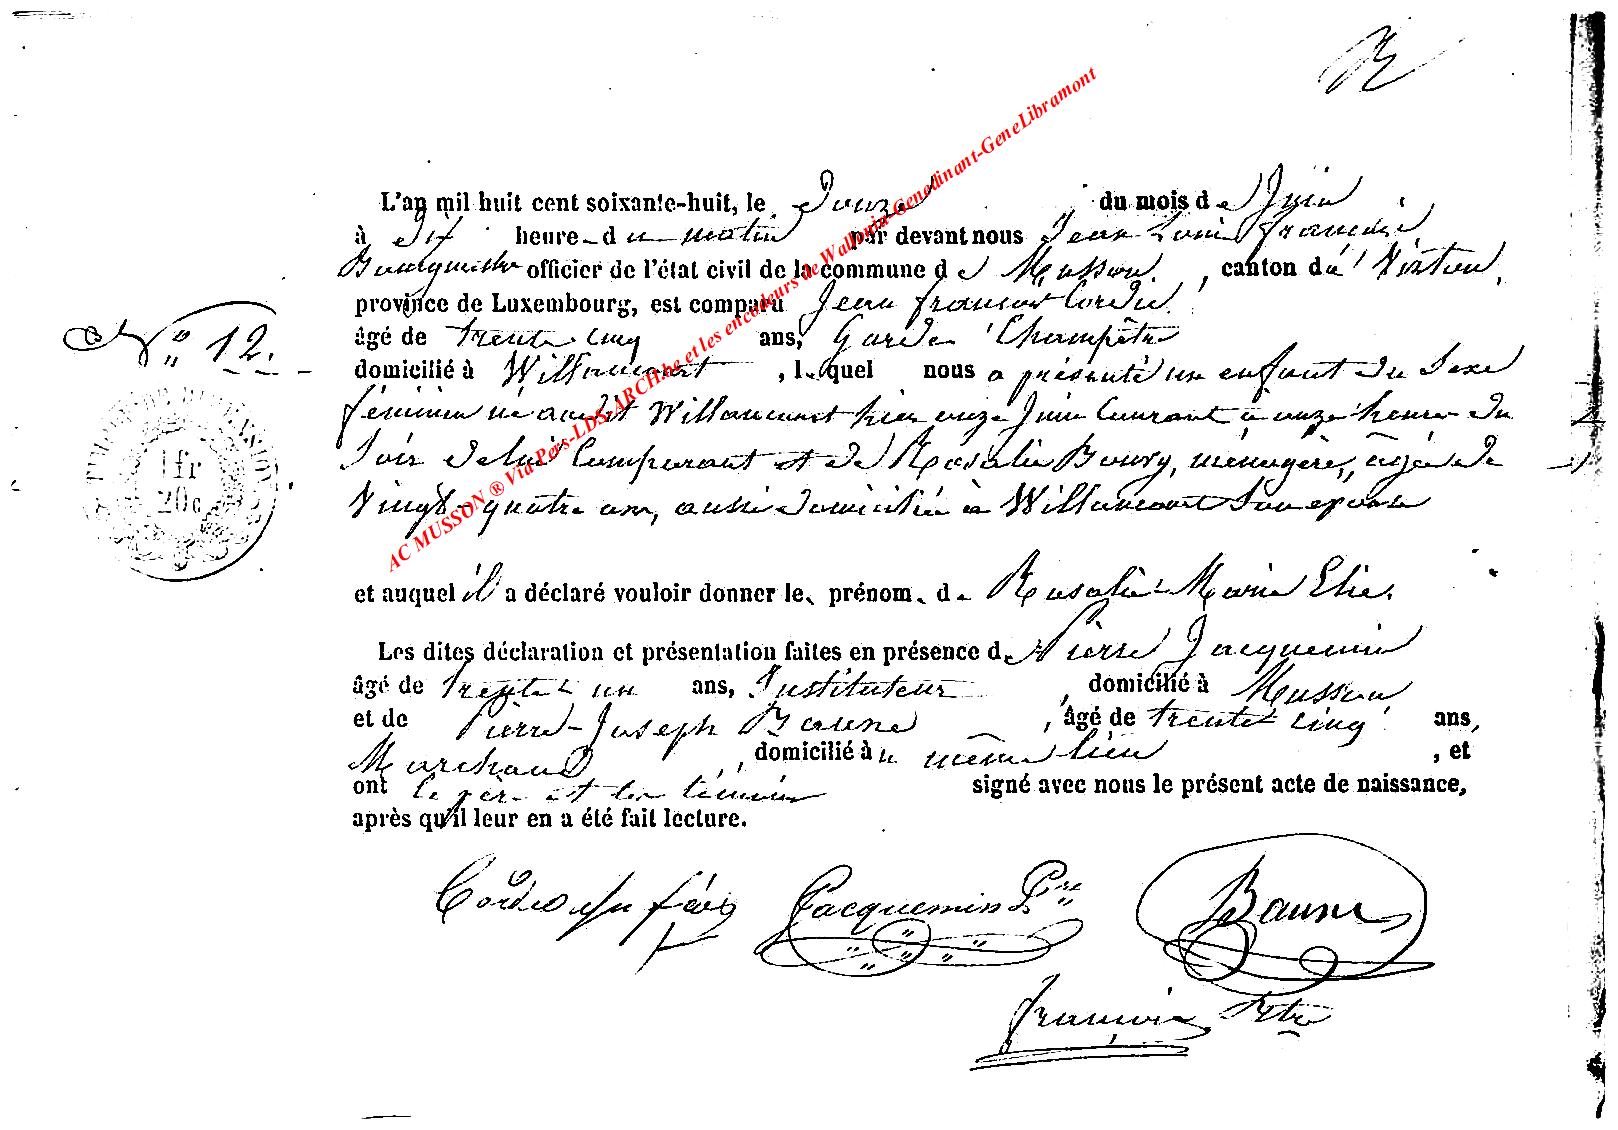 L'an mil huit cent soixante-huit, le Douze du mois de Juin
à dix heure du matin par devant nous Jean Louis François
Bourgmestre officier de l'état civil de la commune de Musson, canton de Virton,
province de Luxembourg, est comparu Jean François Cordié
N° 12.
âgé de trente cinq ans, Garde Champêtre
domicilié à Willancourt, lequel nous a présenté un enfant du Sexe
féminin né audit Willancourt hier onze Juin Courant à onze heures du
Soir de lui Comparant et de Rosalie Boury, ménagère, agée de
Vingt-quatre ans, aussi domiciliée à Willancourt Son épouse
1 fr
20 c
et auquel il a déclaré vouloir donner les prénoms de Rosalie Marie Elie.
Les dites déclaration et présentation faites en présence de Pierre Jacquemin
âgé de trente un ans, Instituteur, domicilié à Musson
et de Pierre-Joseph Baune, âgé de trente cinq ans,
Marchand, domicilié au même lieu, et
ont le père et les témoins signé avec nous le présent acte de naissance,
après qu'il leur en a été fait lecture.
Jacquemin Pre Baune
François
AC MUSSON ® Via Pers-LDS-ARCH.be et les encodeurs de Wallonia-Genedinant-GeneLibramont